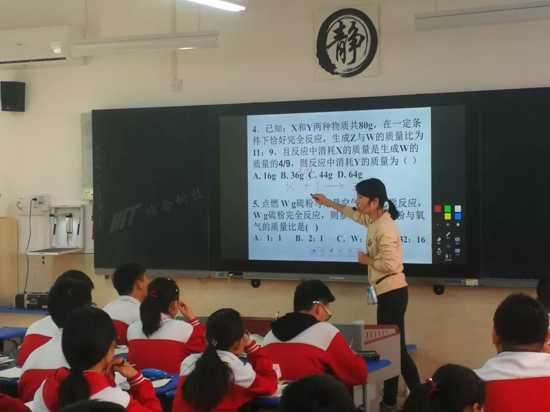 静
4. 已知：X和Y两种物质共80g，在一定条
件下恰好完全反应，生成Z与W的质量比为
11：9，且反应中消耗X的质量是生成W的
质量的4/9，则反应中消耗Y的质量为（ ）
A. 16g B. 36g C. 44g D. 64g
X + Y
5. 点燃 W g硫粉与
反应，
W g硫粉完全反应，则
粉与氧
气的质量比是( )
A. 1：1 B. 2：1 C. W：
32：16